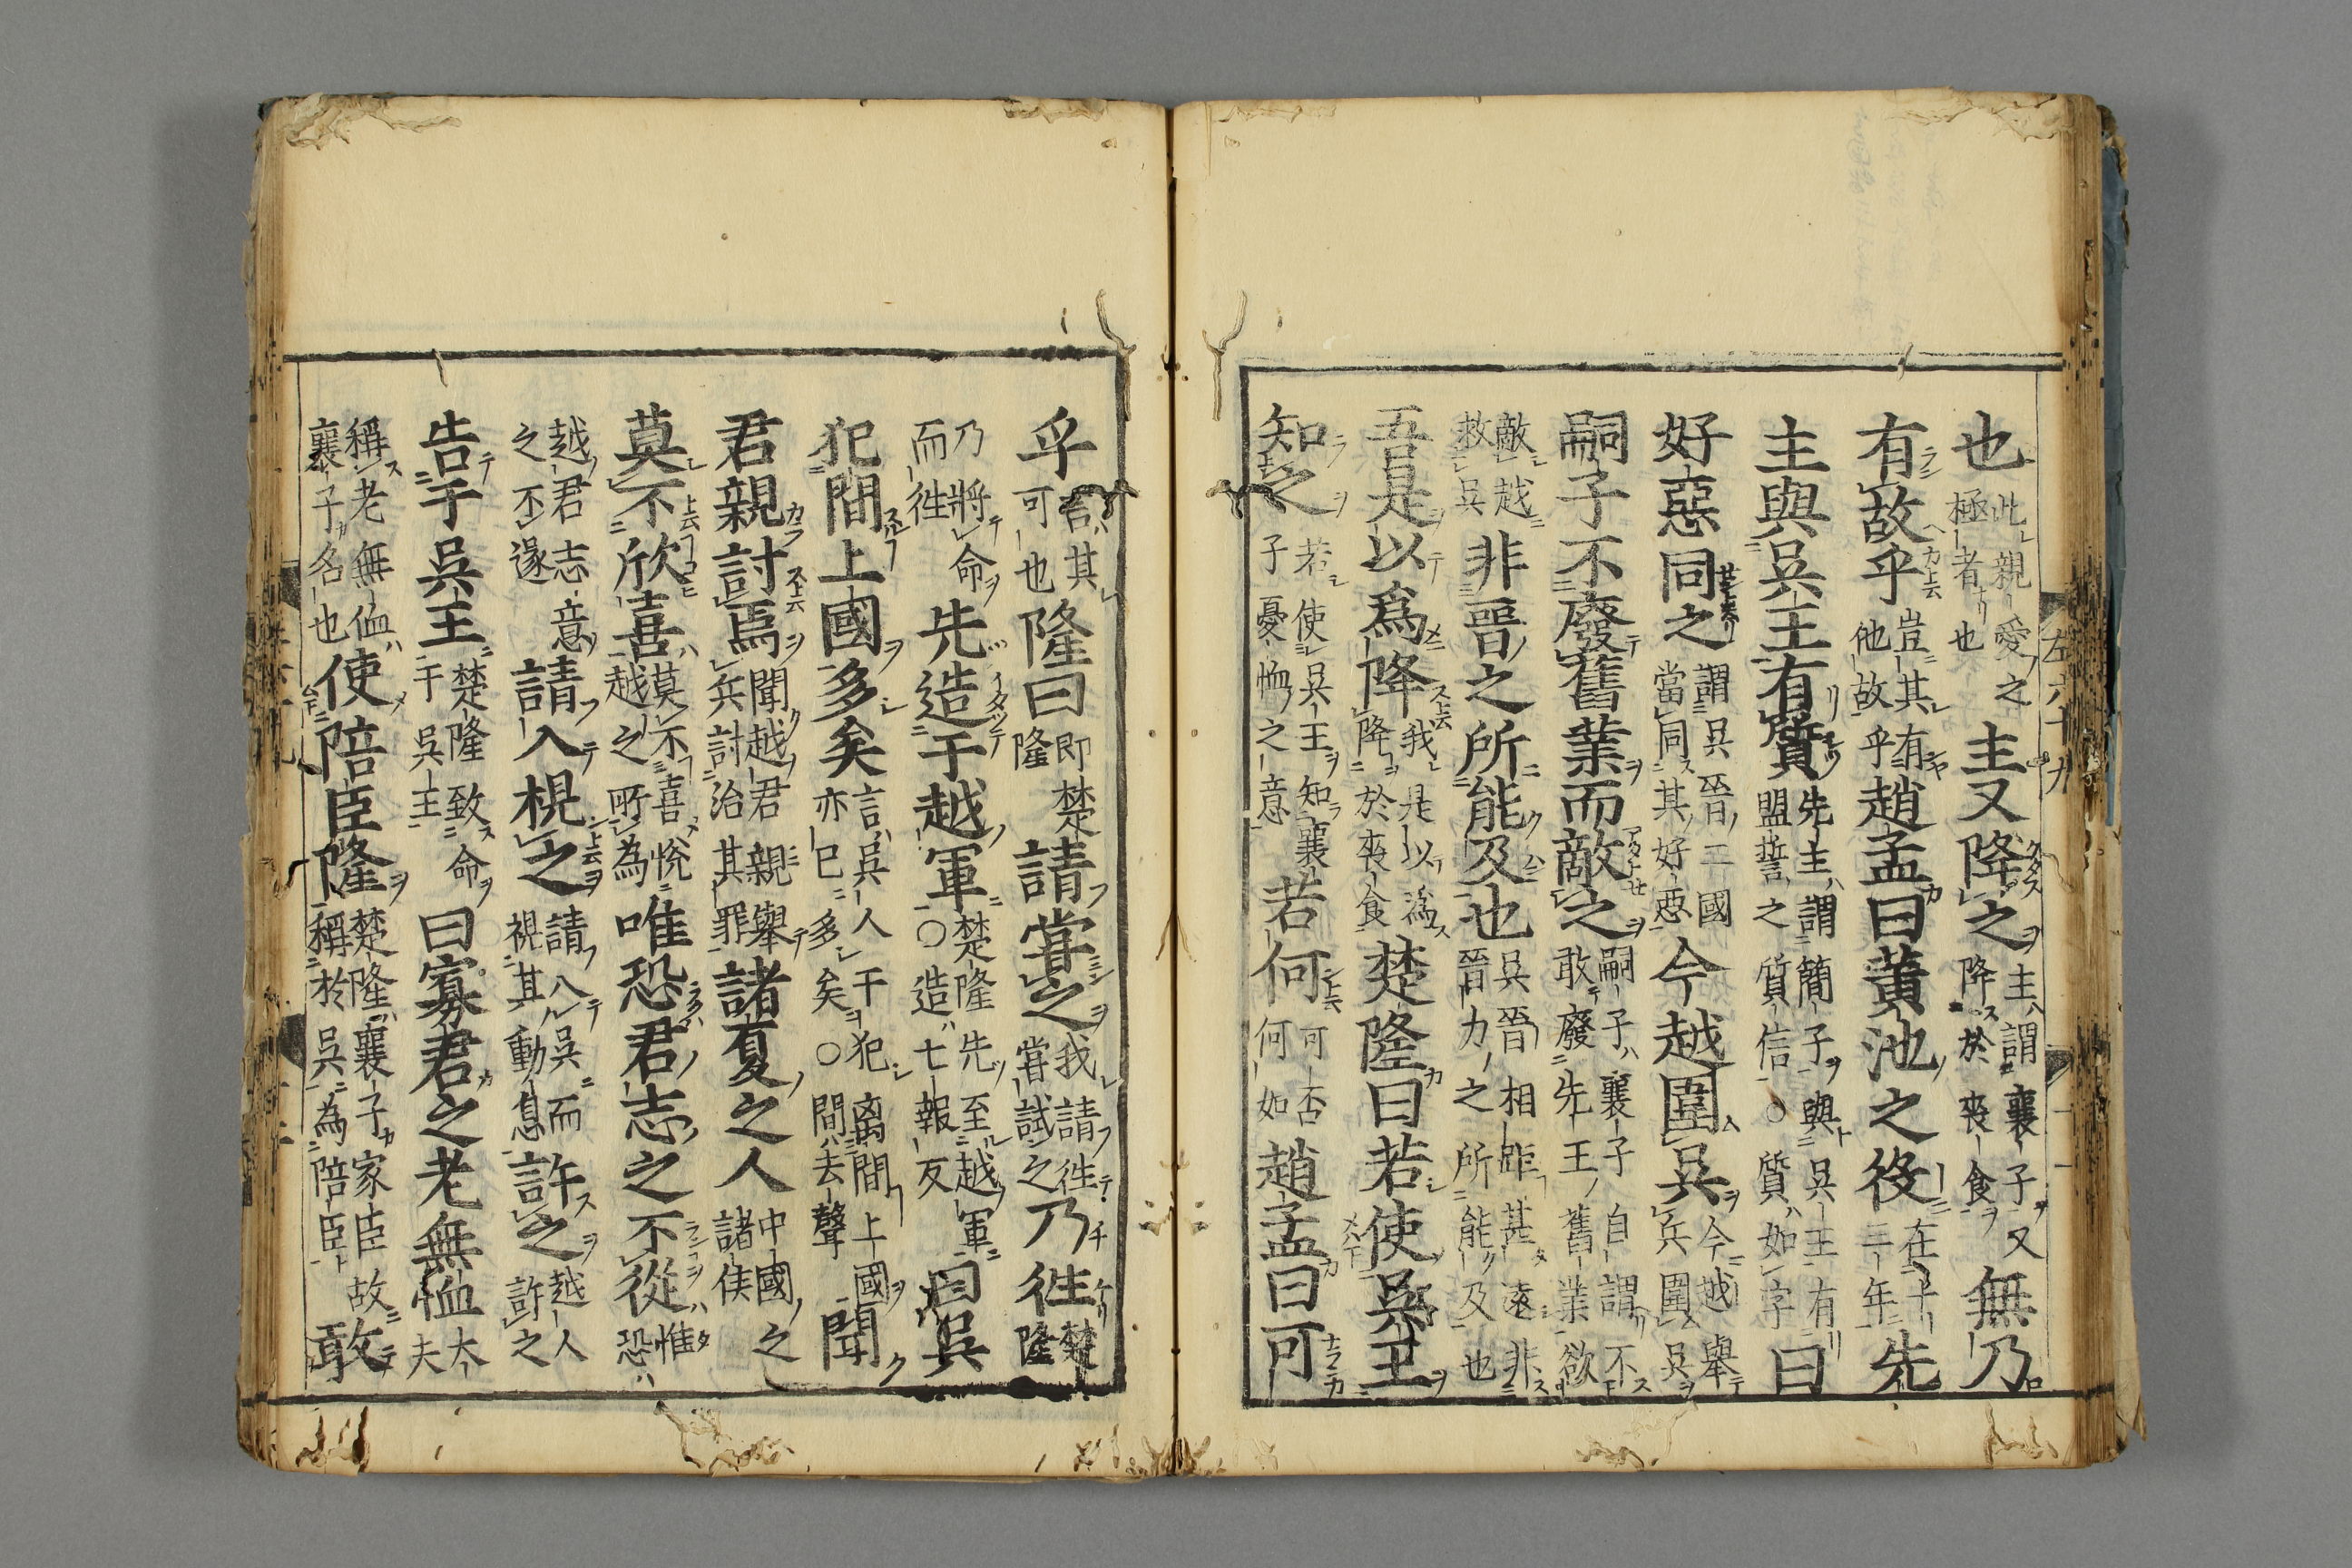 左六十九
也此親愛之極者也主又降之主謂襄子又降於喪食無乃
有故乎豈其有他故乎趙孟曰黃池之役在十三年先
主與吳王有質先主謂簡子與吳王有盟誓之質信○質如字曰
好惡同之謂吳晉二國當同其好惡今越圍吳今越舉兵圍吳
嗣子不廢舊業而敵之嗣子襄子自謂不敢廢先王舊業欲
敵越救吳非晉之所能及也吳晉相距甚遠非晉力之所能及也
吾是以爲降我是以爲降於喪食楚隆曰若使吳王
知之若使吳王知襄子憂恤之意若何可否何如趙孟曰可
乎言其可也隆曰即楚隆請甞之我請徃甞試之乃徃楚隆
乃將命而徃先造于越軍楚隆先至越軍○造七報反曰吳
犯間上國多矣言吳人干犯离間上國亦已多矣○間去聲聞
君親討焉聞越君親舉兵討治其罪諸夏之人中國之諸侯
莫不欣喜莫不喜悅越之所為唯恐君志之不從惟恐
越君志意之不遂請入視之請入吳而視其動息許之越人許之
告于吳王楚隆致命于吳王曰寡君之老無恤大夫
稱老無恤襄子名也使陪臣隆楚隆襄子家臣故稱於吳為陪臣敢